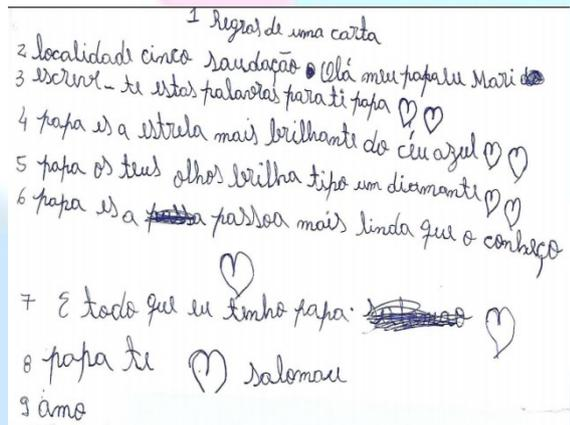 1 Regras de uma carta
2 localidade cinco saudação. Olá meu papalu Mari
3 escrevi-te estas palavras para ti papa
4 papa es a estrela mais brilhante do céu azul
5 papa os teus olhos brilha tipo um diamante
6 papa es a passoa mais linda que o conheço
7 E todo que eu tenho papa.
8 papa te salomau
9 amo